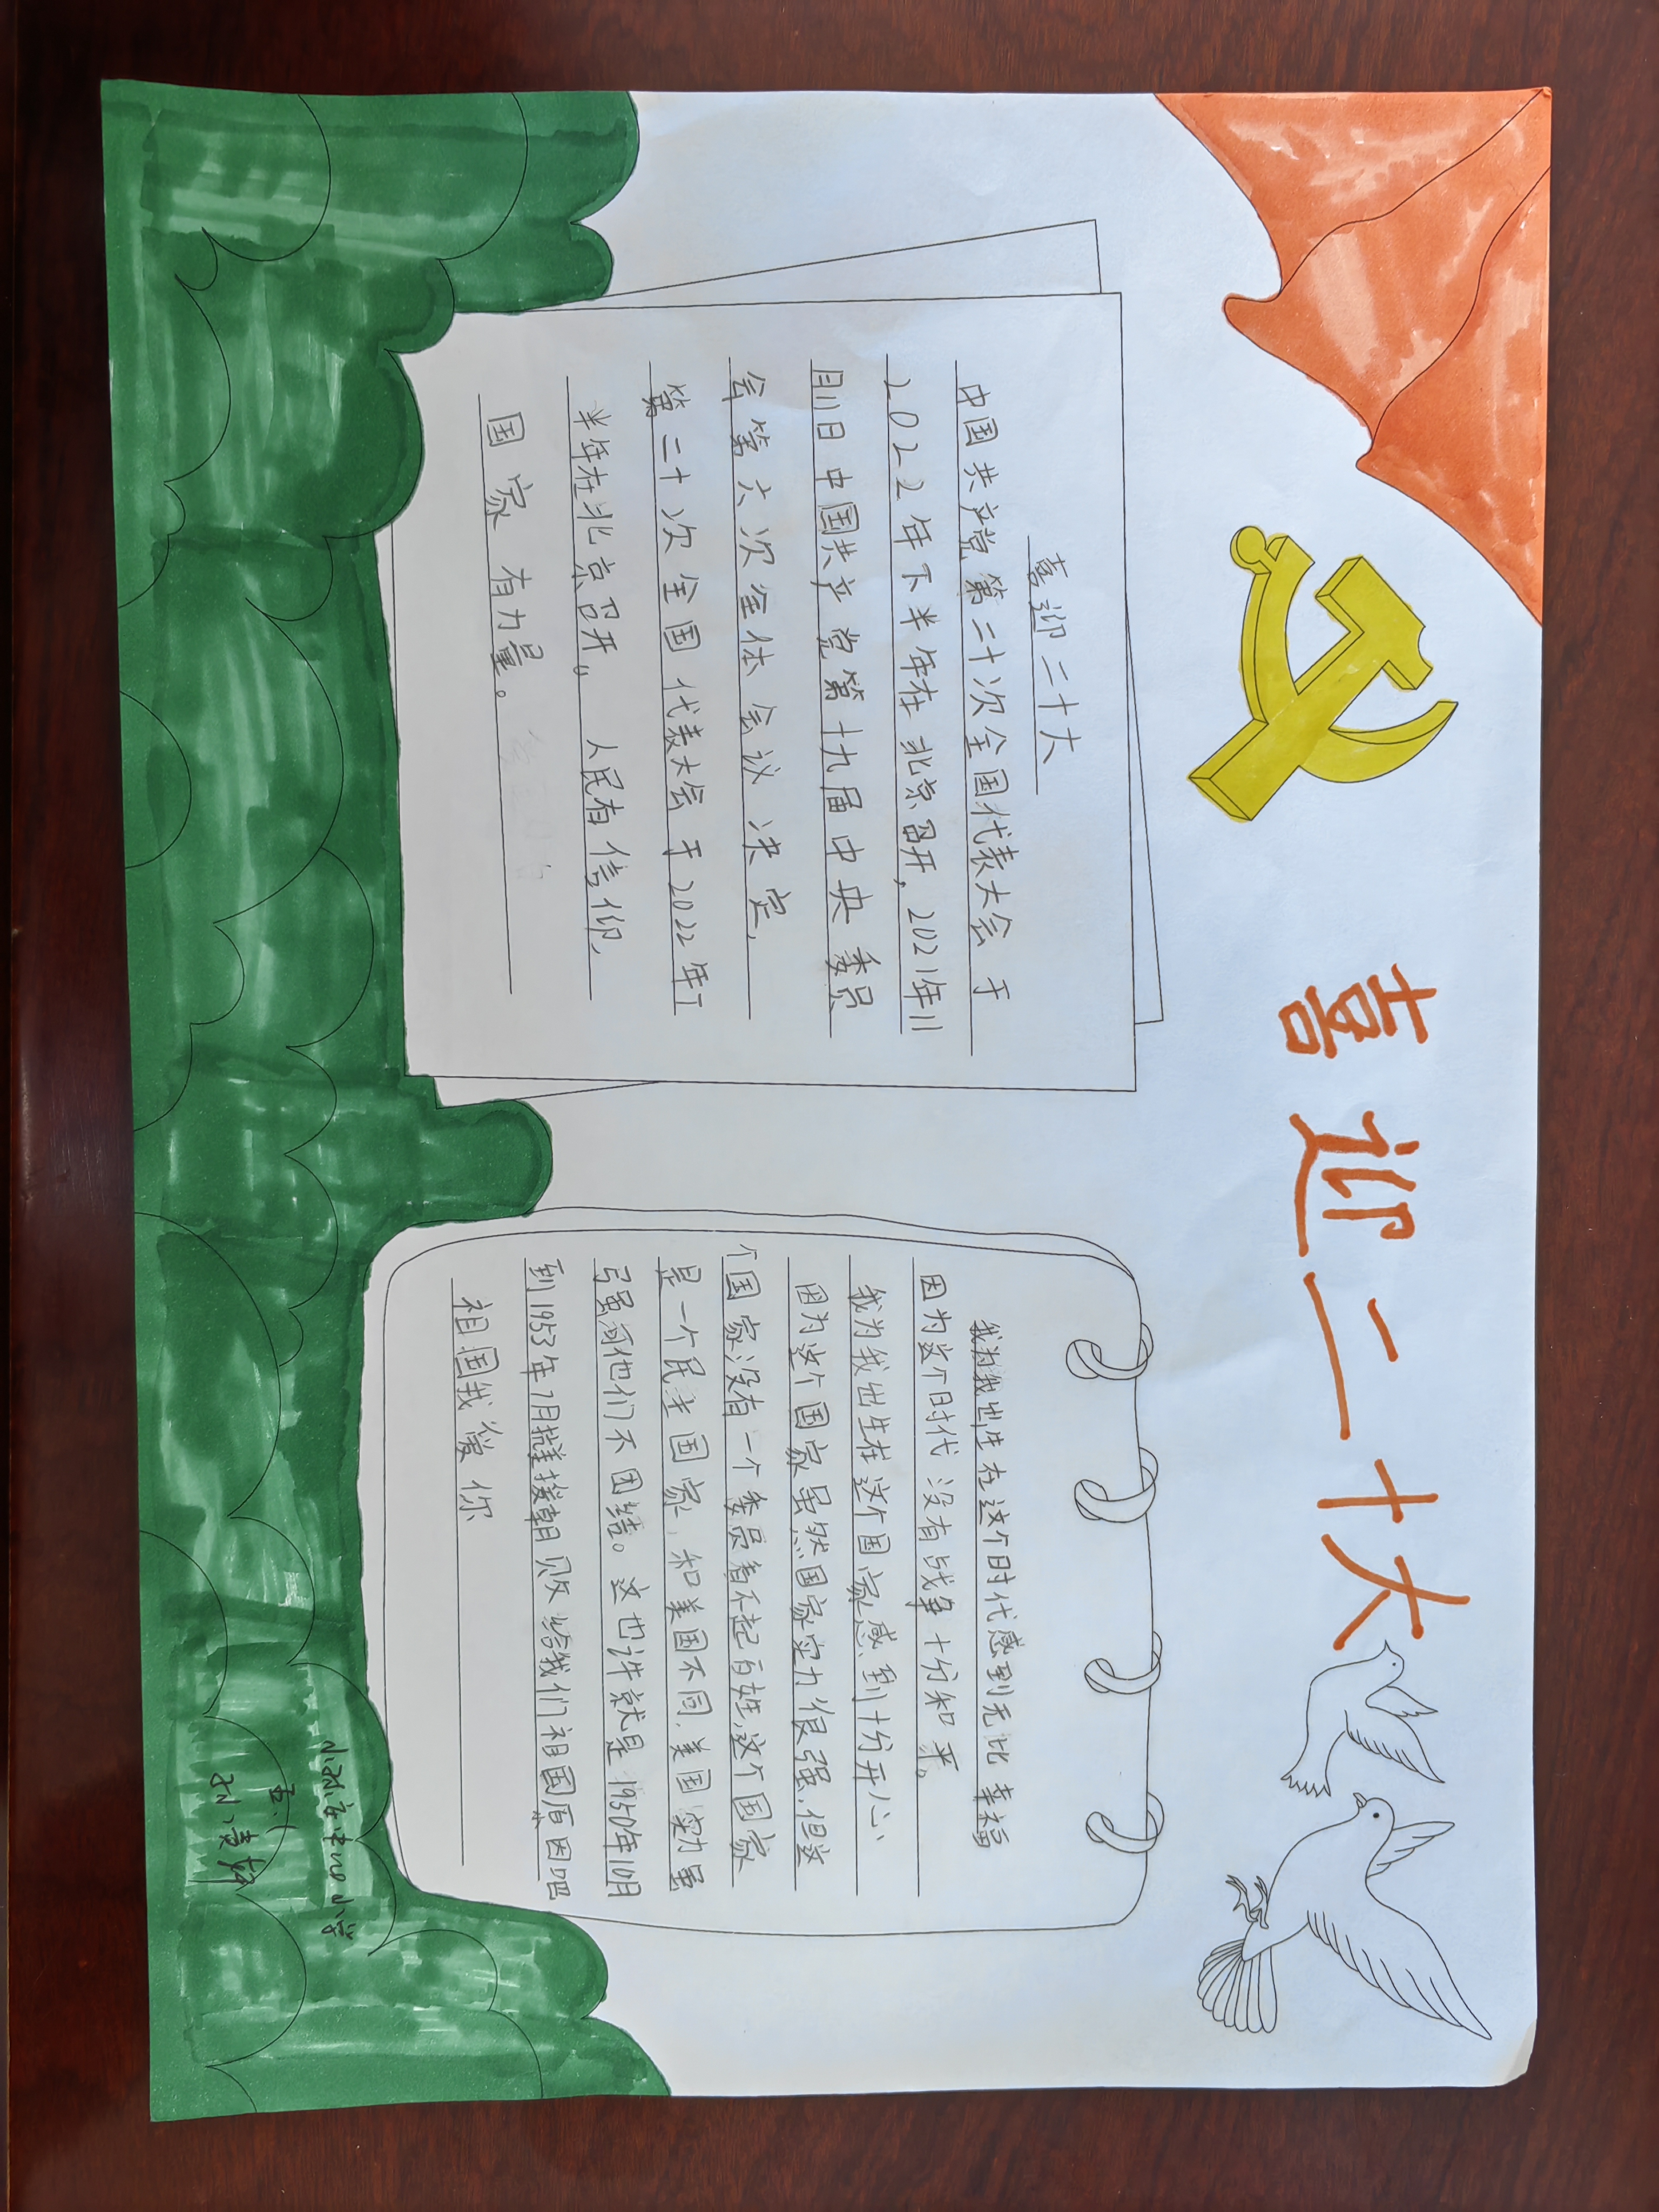 喜迎二十大
喜迎二十大
中国共产党第二十次全国代表大会于
2022年下半年在北京召开,2021年11
月11日中国共产党第十九届中央委员
会第六次全体会议决定,
第二十次全国代表大会于2022年下
半年在北京召开。人民有信仰,
国家有力量。
我为我出生在这个时代感到无比幸福
因为这个时代没有战争十分和平。
我为我出生在这个国家感到十分开心
因为这个国家虽然国家实力很强,但这
个国家没有一个委员看不起百姓,这个国家
是一个民主国家,和美国不同,美国实力虽
强可他们不团结。这也许就是1950年10月
到1953年7月抗美援朝败给我们祖国原因吧
祖国我爱你